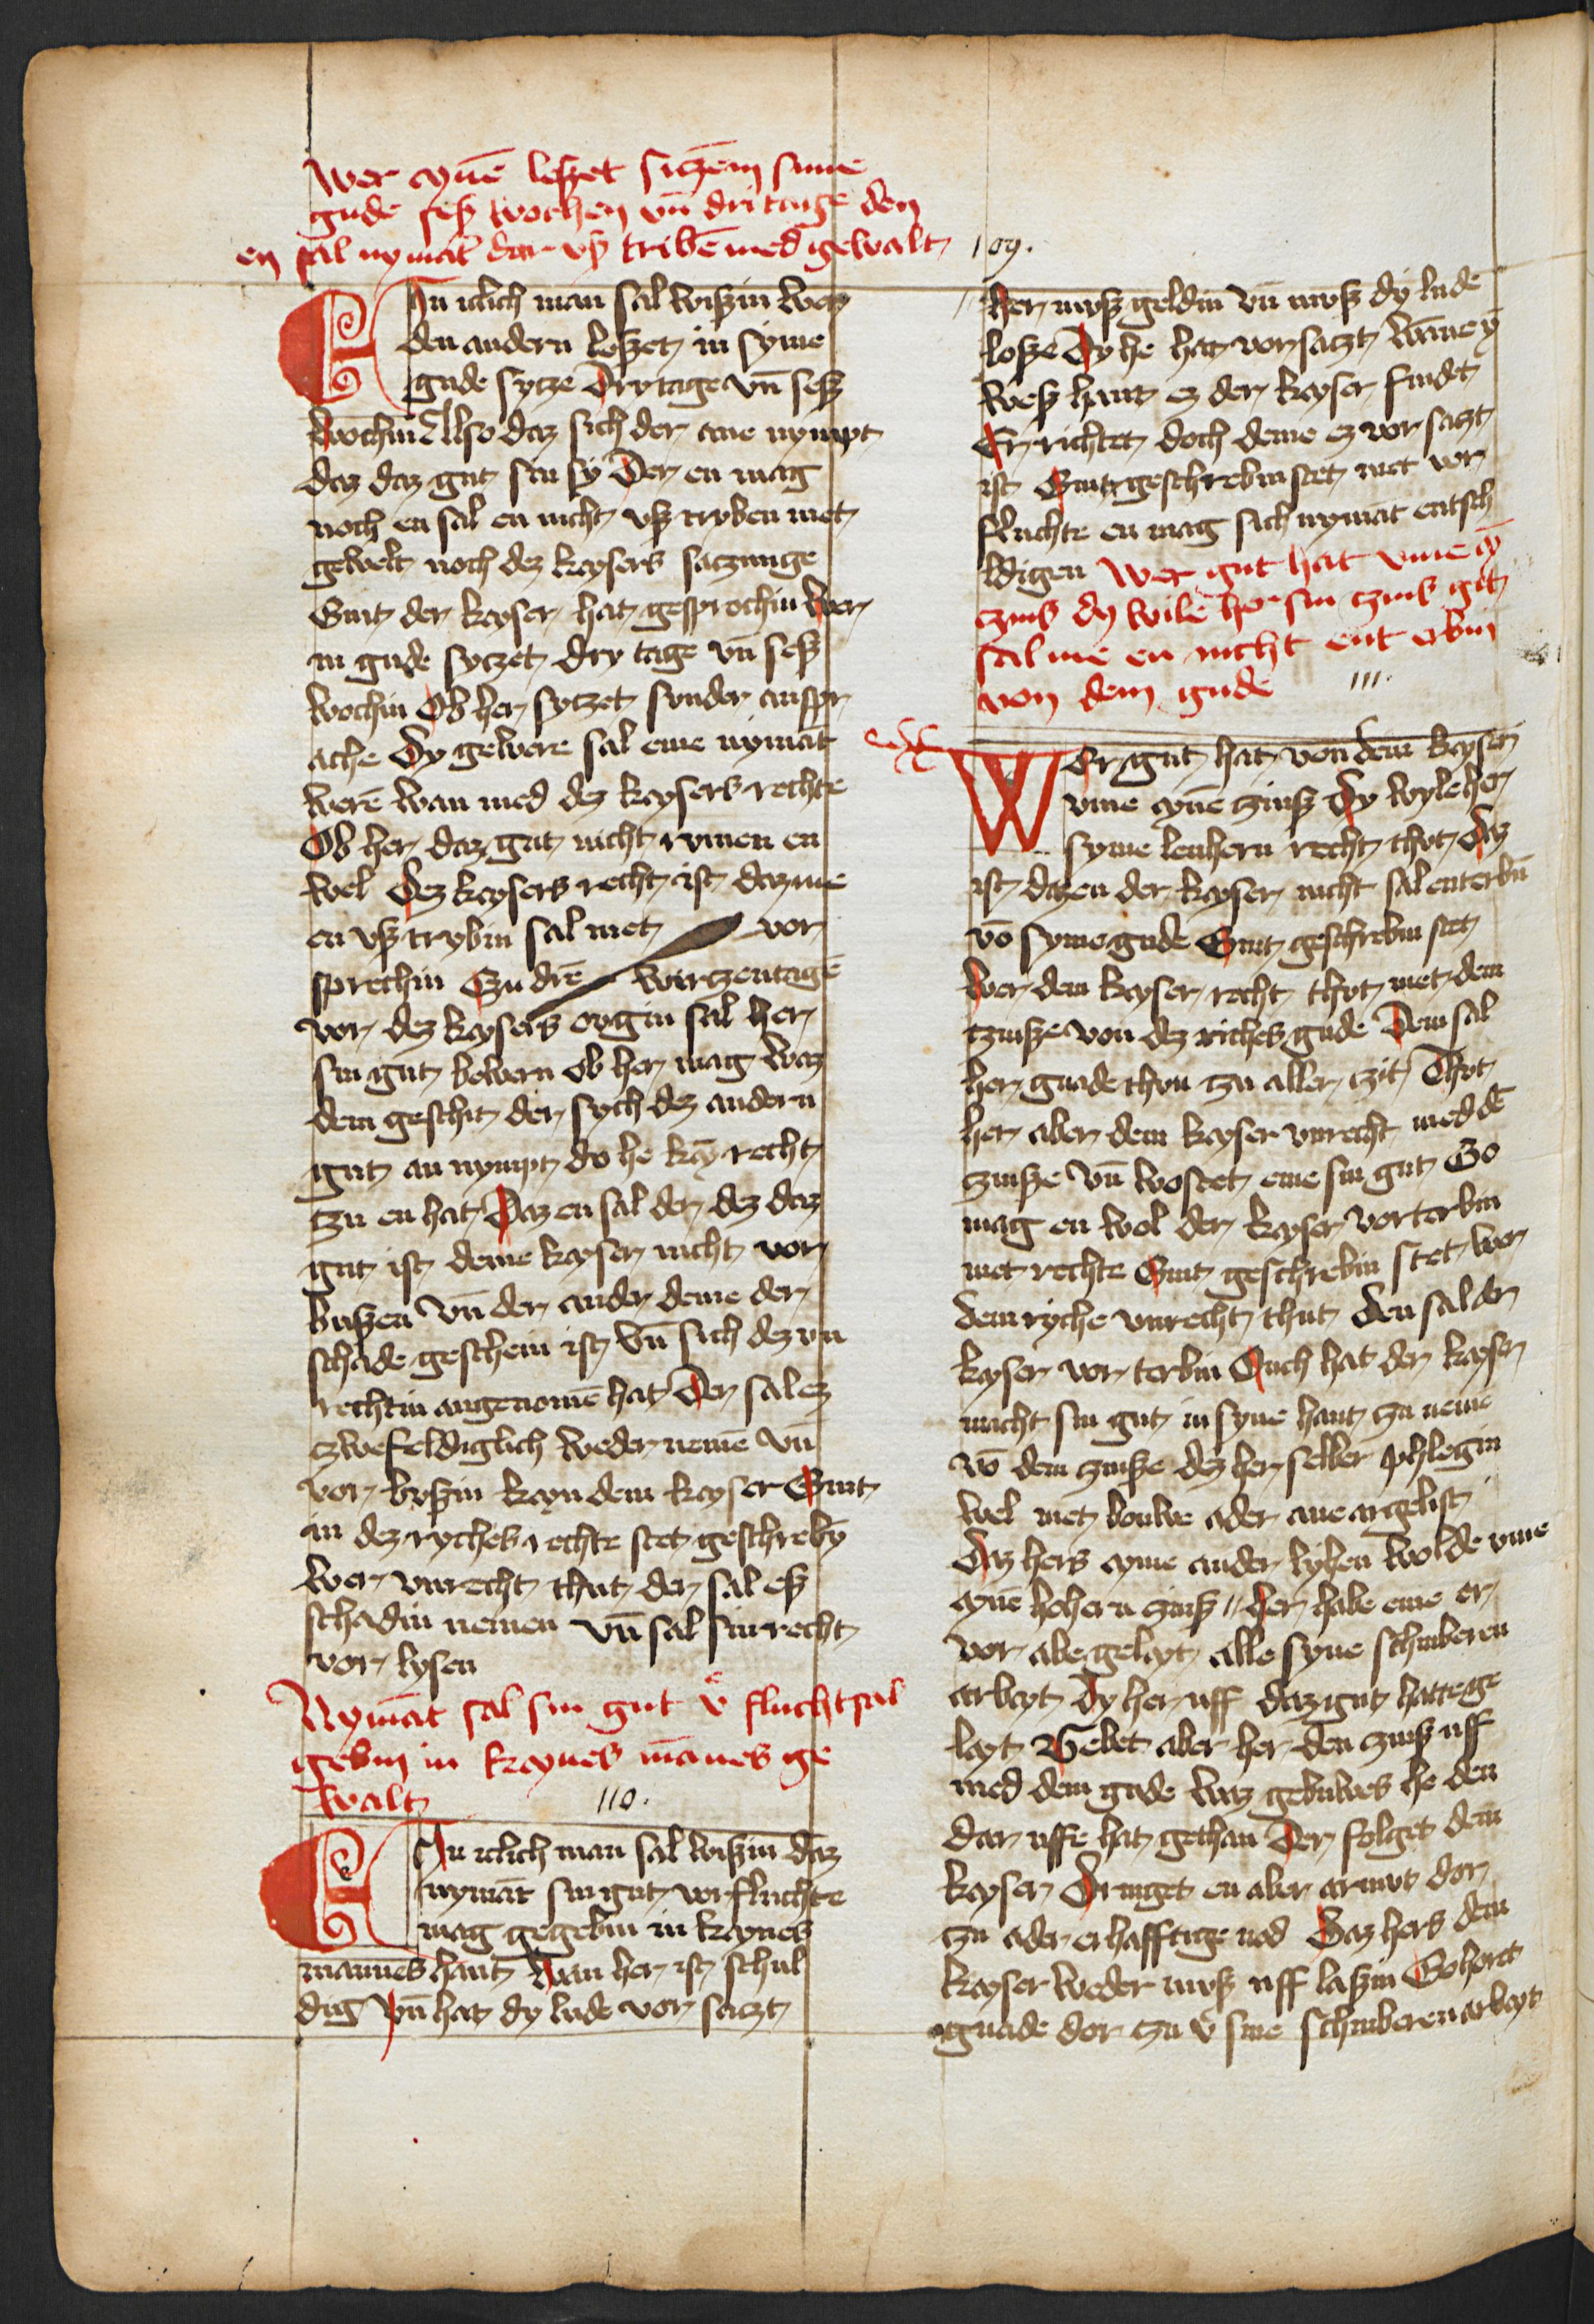 wer eynē leßet siczē in sime
gude seß wochen vn̄ dri tage den
en sal nymāt dar vß tribē med gewalt
109.
Ein iclich man sal wißin wer
den andern leßet in syme
gude sytze dry tage vn̄ seß
wochin Also daz sich der ane nympt
daz daz gut sin sy Der en mag
noch en sal en nicht vß tryben met
gewelt noch dez keysers saczunge
Sint der keyser hat gesprochin wer
in gude syczet dry tage vn̄ seß
wochin Ob her syczet sunder anspr
ache Dy gewere sal eme nymāt
werē wan med dez keysers rechte
Ob her daz gut nicht rumen en
wel Dez keysers recht ist daz me
en vß trybin sal met vor
sprechin Zu drē virczentagē
vor dez keysers ougin sal her
sin gut bewern ob her mag waz
dem geschit der sych dez andern
gut an nympt do he keȳ recht
zu en hat Daz en sal der dez daz
gut ist deme keyser nicht vor
bußen vn̄ der ander deme der
schade geschein ist vn̄ sich dez vn
rechtin angenomē hat Der sal ez
zwefeldiglich weder nemē vn̄
vor bußin keyn dem keyser Sint
in dez ryches rechte stet geschrebȳ
wer vnrecht thut der sal eß
schadin nemen vn̄ sal sin recht
vor lysen
Nymāt sal sin gut v͛ fluchtsal
gebin in keynes mānes ge
walt
110.
Ein iclich man sal wißin daz
nymāt sin gut vor fluchte
mag gegebin in keynes
mannes hant wan her ist schul
dig vn̄ hat dy lude vor saczt
her muß geldin vn̄ muß dy lude
loße Dy he hat vorsaczt wāme ȳ
weß hant ez der keyser findet
Er richtet doch deme ez vor saczt
ist Sint geschrebin stet met vor
fluchte en mag sich nymāt entsch
ldigen wer gut hat vmme eȳ
czins dy wile her sin czins git
sal me en nicht ent erbin
von dem gude
111.
Wer gut hat von dem keyser
vmme eynē zinß Dy wyle her
syme lenhern recht thot Daz
ist daz en der keyser nicht sal enterbn̄
vō syme gude Sint geschrebin stet
wer dem keyser recht thot met dem
czinße von dez riches gude Dem sal
her gnade thon zu aller zit Thot
her aber dem keyser vnrecht med dē
zinße vn̄ wostet eme sin gut So
mag en wol der keyser vorterbin
met rechte Sint geschrebin stet wer
dem ryche vnrecht thut den sal der
keyser vor terbin Ouch hat der keyser
macht sin gut in syne hant zu neme
vō dem zinße dez her selber phlegin
wel met bouwe ader ane argelist
Daz hers eyme ander lyhen wolde vmme
eynē hohern zinß her habe eme er
vor abe geleyt alle syne schinberen
arbeyt Dy her uff daz gut hatte ge
leyt Gebet aber her den zinß uff
med dem gude waz gebuwes he den
dar uffe hat gethan Der folget dem
keyser Dringet en aber armut dor
zu ader erhafftige nod Daz hers dem
keyser weder muß uff laßin So hort
gnade dor zu v͛ sine schinberen arbeyt